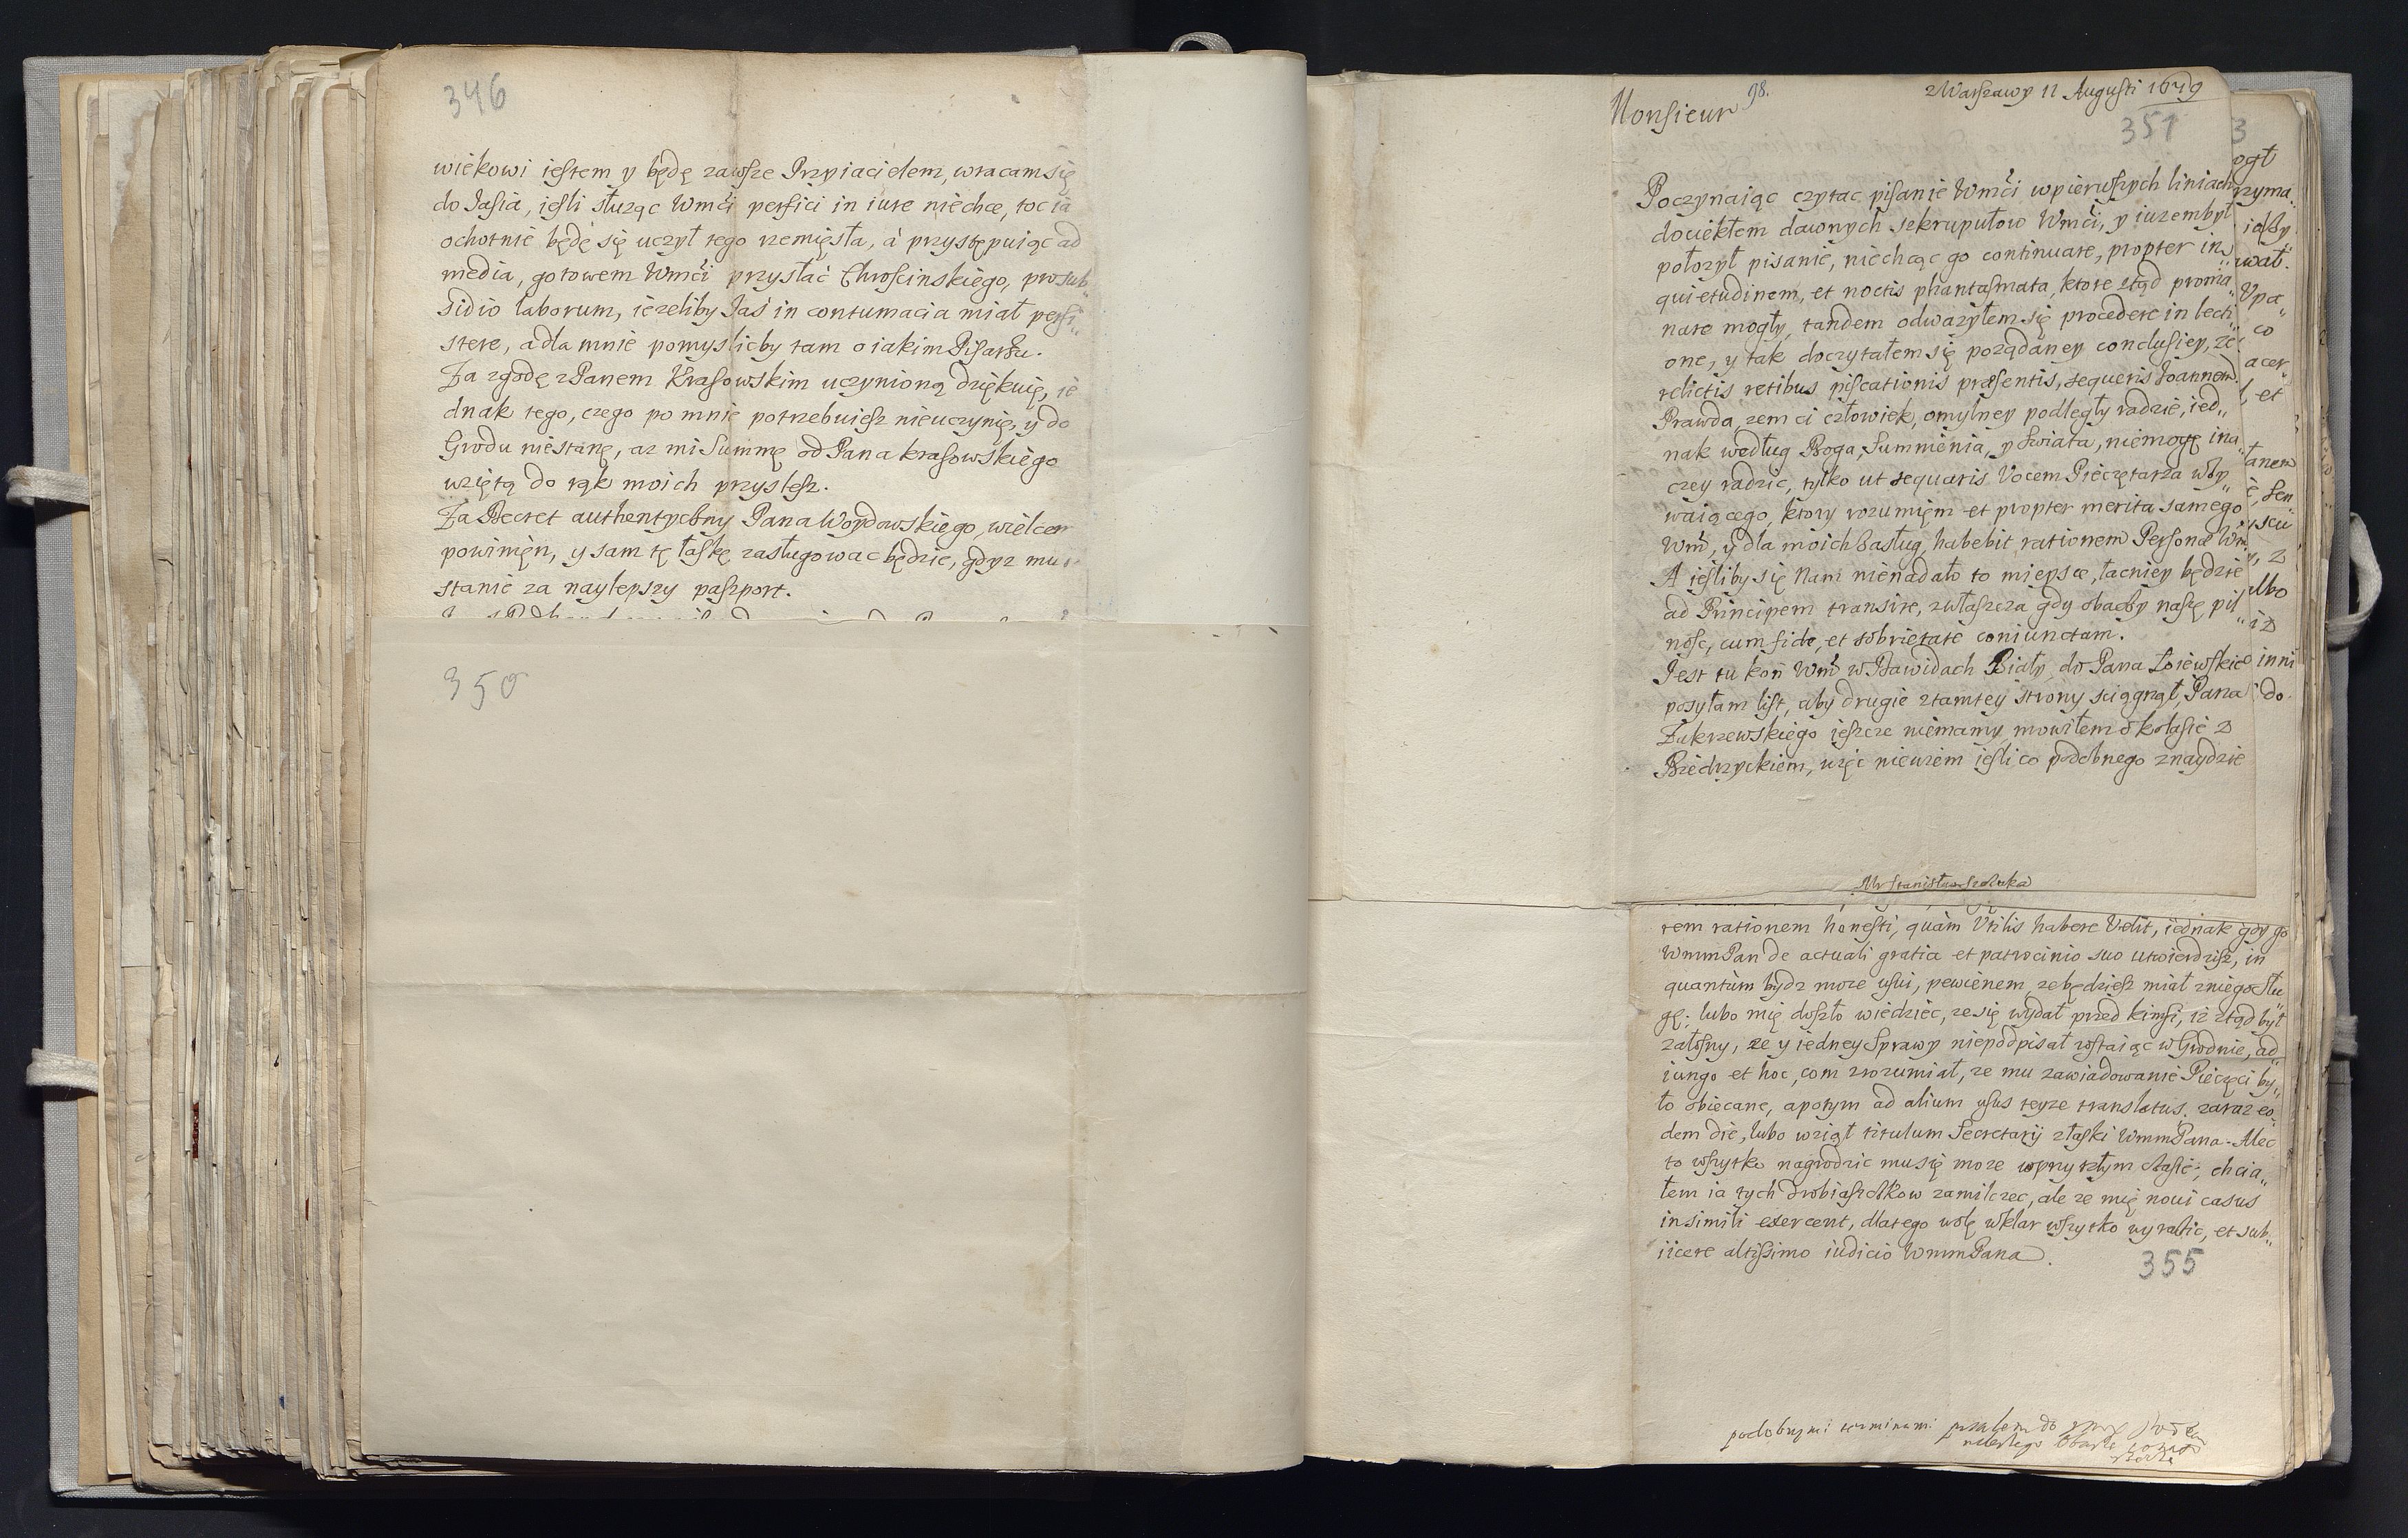 346
wiekowi iestem y będę zawsze Przyiacielem, wracam się
do Jasia, iesli służąc Wmći perfici in iure niechce, toc ia
ochotnie będę się uczył tego rzemięsła, à przystępuiąc ad
media, gotowem Wmći przysłać Chroscinskiego, pro sub„
sidio laborum, iezeliby Jaś in contumacia miał persi„
stere, a dla mnie pomyslicby tam o iakim Pisarzu.
Za zgodę z Panem Krasowskim uczynioną dziękuię, ie
dnak tego, czego po mnie potrzebuiesz nieuczynię, y do
Grodu niestanę, az mi Summę od Pana Krasowskiego
wziętą do rąk moich przyslesz.
Za Decret authentyczny Pana Woydowskiego, wielcem
powinięn, y sam tę łaskę zasługowac będzie, gdyz mu
stanie za naylepszy paszport.
350
98.
z Warszawy 11 Augusti 1679
Monsieur
351
Poczynaiąc czytac pisanie Wmći w pierwszych liniach
dociekłem dawnych skrupułow Wmći, y iuzembył
położył pisanie, niechcąc go continuare, propter in„
quietudinem, et noctis phantasmata, ktore ztąd proma„
nare mogły, tandem odwazyłem się procedere in lecti„
one, y tak doczytałem się pożądaney conclusiey, że
relictis retibus piscationis præsentis, sequeris Joannem.
Prawda, zem ci człowiek, omylney podległy radzie, ied„
nak według Boga, Sumnienia, y Swiata, niemogę ina„
czey radzic, tylko ut sequaris Vocem Pieczętarza wzy„
waiącego, ktory rozumięm et propter merita samego
Wm̃, y dla moich Zasług, habebit rationem Personæ Wm̃.
A iesliby się Nam nienadało to mieysce, łacniey będzie
ad Principem transire, zwłaszcza gdy obaczy naszę pil„
nosc, cum fide, et sobrietate coniunctam.
Jest tu koń Wm̃ w Dawidach Biały, do Pana Łoiewskie„
posyłam list, aby drugie z tamtey strony sciągnął, Pana
Zakrzewskiego ieszcze niemamy, mowiłem o kolasie z
Biedrzyckiem, więc niewiem iesli co podobnego znaydzie
Mr Stanisław Szczuka
3
ogł
rzyma„
idby
uwał.
Vpa„
co
acer„
, et
tanem
è, Sen
scu„
, z
lbo
iz
inni
do.
rem rationem honesti, quàm Vtilis habere Velit, iednak gdy go
WmmPan de actuali gratia et patrocinio suo utwierdzisz, in
quantùm bydz moze usui, pewienem, ze będziesz miał z niego Słu„
gę; lubo mię doszło wiedziec, ze się wydał przed kimsi, iz ztąd był
załosny, ze y iedney Sprawy niepodpisał zostaiąc w Grodnie, ad„
iungo et hoc, com zrozumiał, ze mu zawiadowanie Pieczęci by„
ło obiecane, a potym ad alium usus teyze translatus, zaraz eo„
dem die, lubo wziął titulum Secretarij z łaski WmmPana. Alec
to wszytko nagrodzic mu się moze w przyszłym Czasie; chcia„
łem ia tych drobiazczkow zamilczec, ale ze mię novi casus
in simili exercent, dlatego wolę wklar wszytko wyrazic, et sub„
iicere altissimo iudicio WmmPana.
355
podobnymi terminami pisałem do